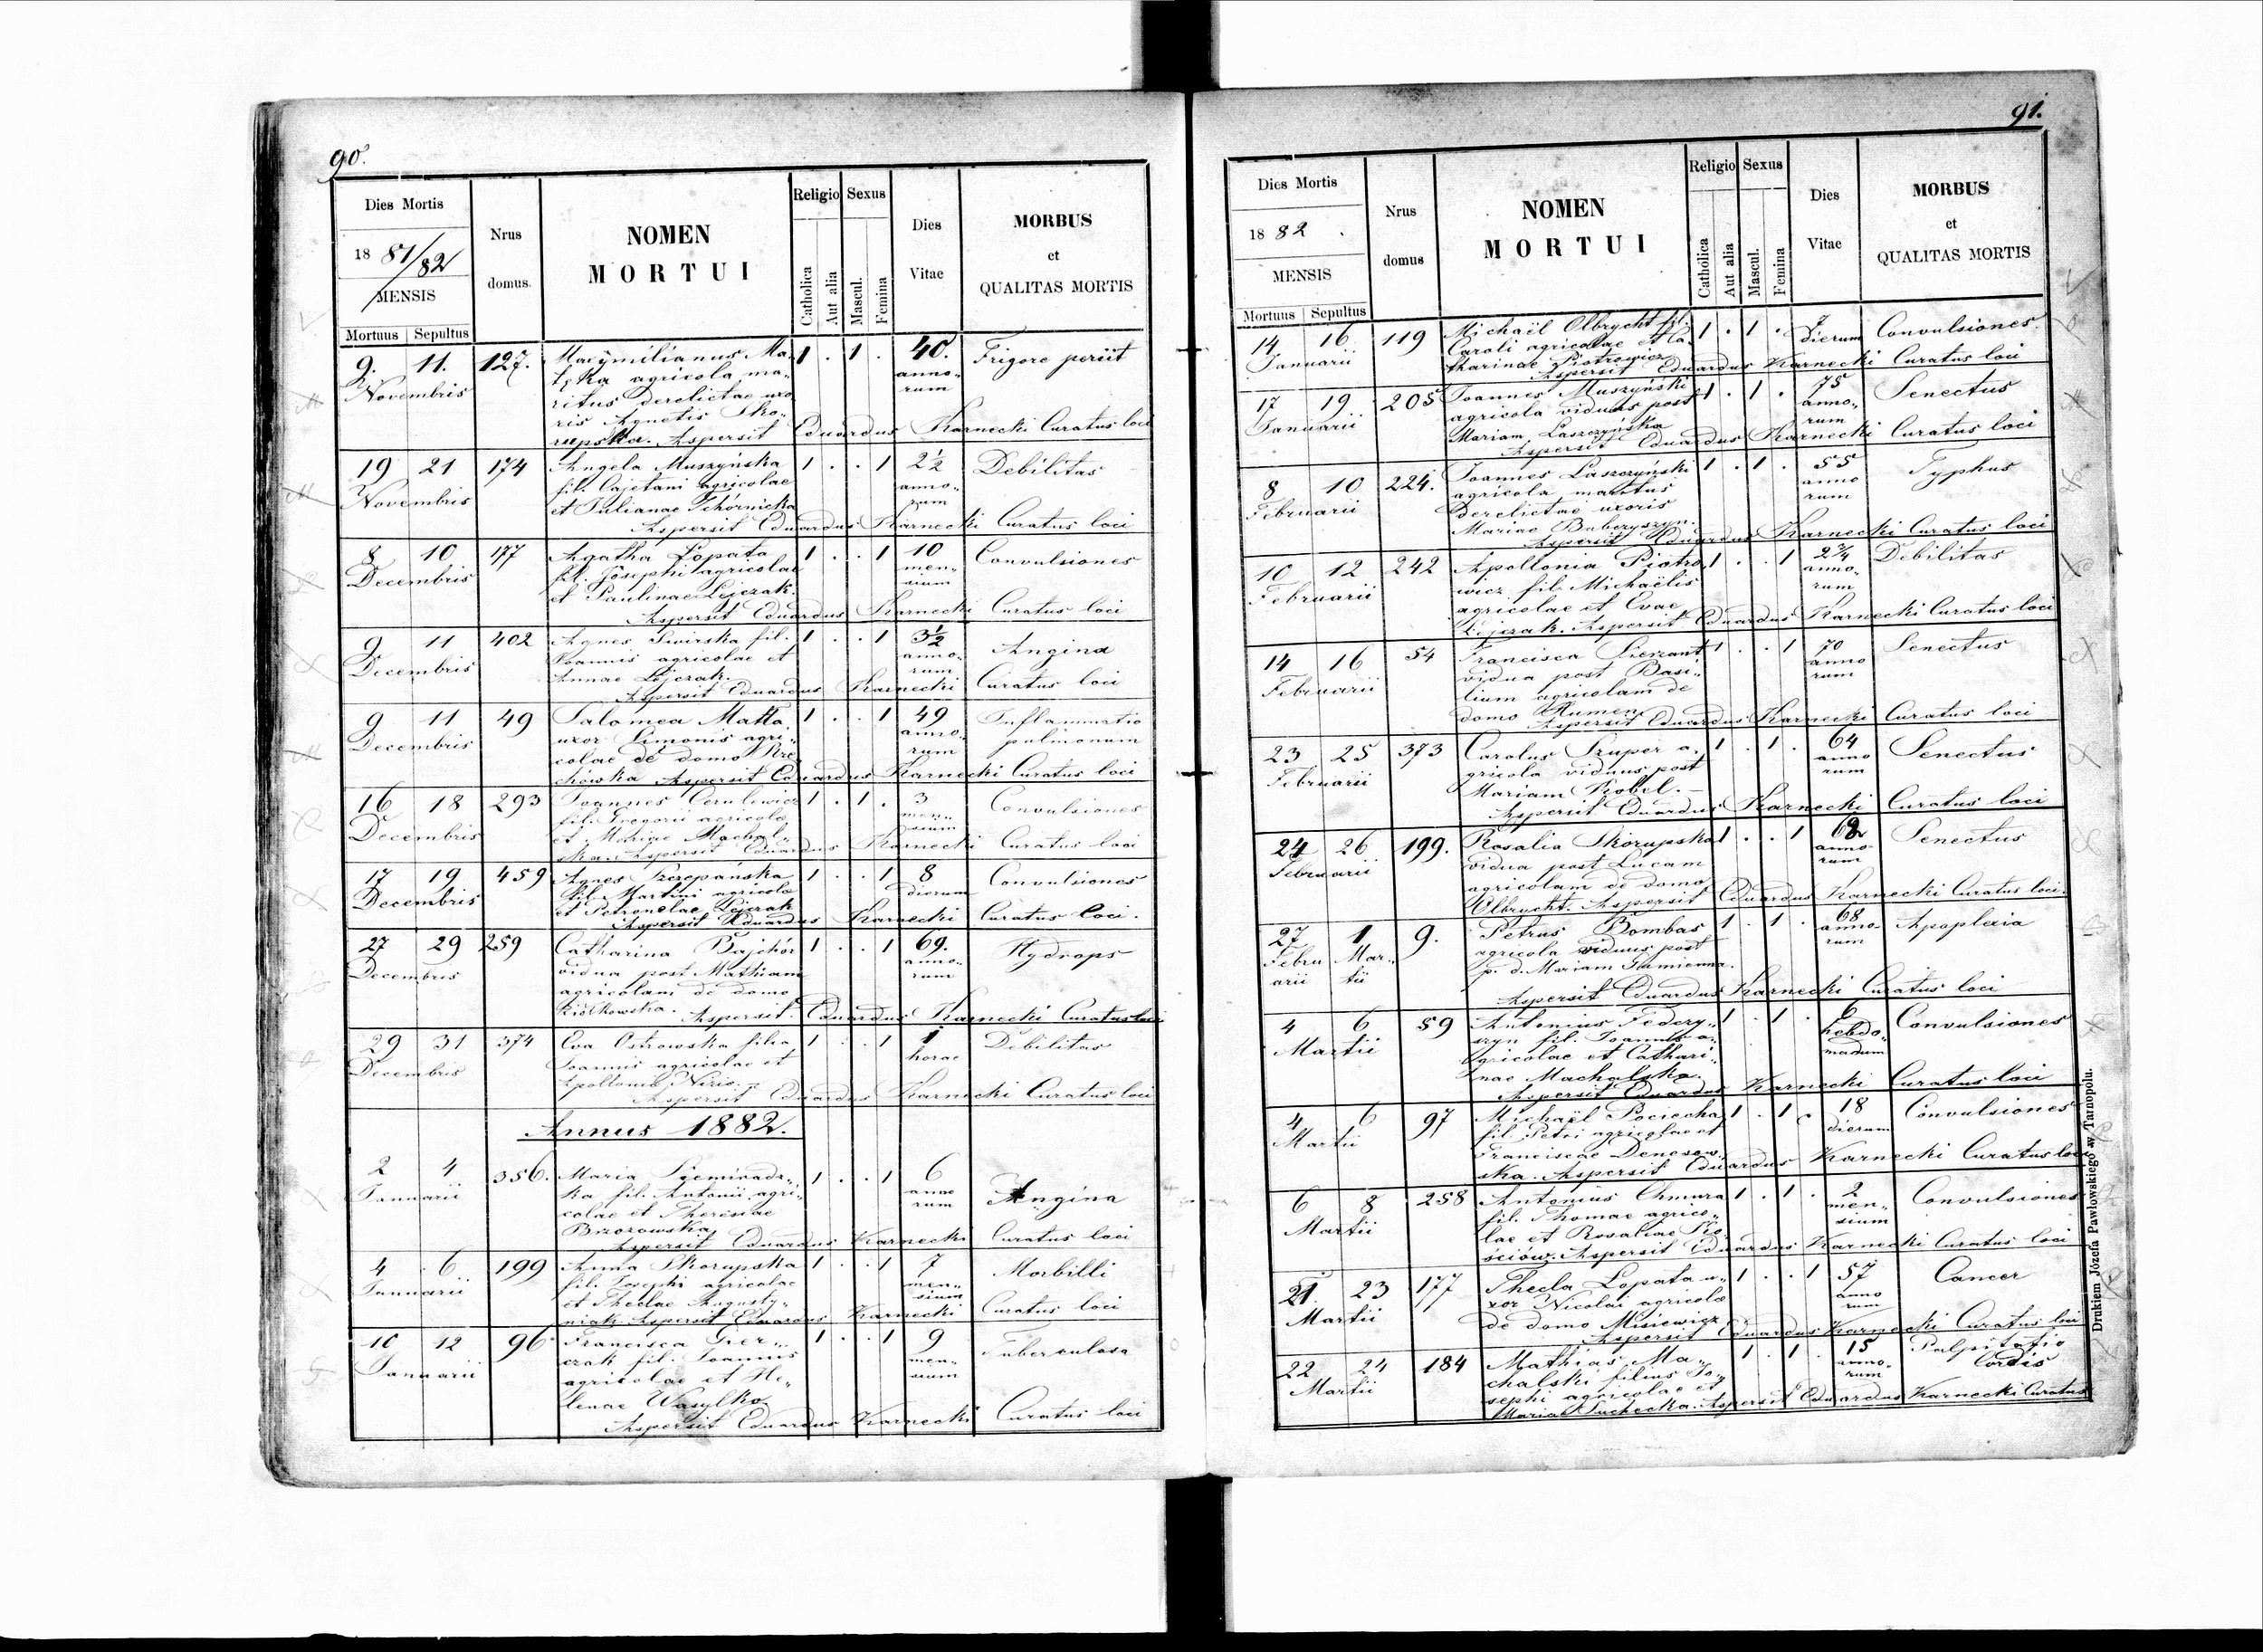 90.
Dies Mortis
18 81/82
MENSIS
Mortuus Sepultus
Nrus domus.
NOMEN
MORTUI
Religio
Catholica
Aut alia
Sexus
Mascul.
Femina
Dies Vitae
MORBUS
et
QUALITAS MORTIS
9. 11. 127. Maxymilianus Ma- 1 . 1 . 40. Frigore periit
Novembris agricola ma- anno-
ritus derelictae uxo- rum
ris Agnetis Sko-
rupska. Aspersit Eduardus Karnecki Curatus loci
19 21 174 Angela Muszyńska 1 . . 1 2½ Debilitas
Novembris fil. Cajetani agricolae anno-
et Julianae Tchórnicka rum
Aspersit Eduardus Karnecki Curatus loci
8 10 177 Agatha Łopata 1 . . 1 10 Convulsiones
Decembris fil. Josephi agricolae men-
et Paulinae Lejczak. sium
Aspersit Eduardus Karnecki Curatus loci
9 11 402 Agnes Siwirska fil. 1 . . 1 3½ Angina
Decembris Joannis agricolae et anno-
Annae Lejczak. rum
Aspersit Eduardus Karnecki Curatus loci
9 11 49 Salomea Matła 1 . . 1 49 Inflammatio
Decembris uxor Simonis agri- anno- pulmonum
colae de domo rum
Aspersit Eduardus Karnecki Curatus loci
16 18 293 Joannes Cerulewicz 1 . 1 . 3 Convulsiones
Decembris fil. Gregorii agricolae men-
et Mariae Machal- sium
ska. Aspersit Eduardus Karnecki Curatus loci
17 19 459 Agnes Szczepańska 1 . . 1 8 Convulsiones
Decembris fil. Martini agricolae dierum
et Petronelae Lejczak
Aspersit Eduardus Karnecki Curatus loci.
27 29 259 Catharina Bajchór 1 . . 1 69. Hydrops
Decembris vidua post Mathiam anno-
agricolam de domo rum
Ziółkowska. Aspersit. Eduardus Karnecki Curatus loci
29 31 374 Eva Ostrowska filia 1 . . 1 1 Debilitas
Decembris Joannis agricolae et horae
Apolloniae
Aspersit Eduardus Karnecki Curatus loci
Annus 1882.
2 4 356. Maria Siemiradz- 1 . . 1 6 Angina
Januarii ka fil. Antonii agri- anno
colae et Theresiae rum
Brzozowska
Aspersit Eduardus Karnecki Curatus loci
4 6 199 Anna Skorupska 1 . . 1 7 Morbilli
Januarii fil. Josephi agricolae men-
et Theclae Augusty- sium
niak Aspersit Eduardus Karnecki Curatus loci
10 12 96 Francisca Gier- 1 . . 1 9 Tuberculosa
Januarii czak fil. Joannis men-
agricolae et He- sium
lenae Wasylko
Aspersit Eduardus Karnecki Curatus loci
91.
Dies Mortis
18 82.
MENSIS
Mortuus Sepultus
Nrus domus
NOMEN
MORTUI
Religio
Catholica
Aut alia
Sexus
Mascul.
Femina
Dies Vitae
MORBUS
et
QUALITAS MORTIS
14 16 119 Michaël Olbrycht fil. 1 . 1 . 7 Convulsiones.
Januarii Caroli agricolae et Ca- dierum
tharinae Piotrowicz
Aspersit Eduardus Karnecki Curatus loci
17 19 205 Joannes Muszyński 1 . 1 . 75 Senectus
Januarii agricola viduus post anno-
Mariam Łaszczyńska rum
Aspersit Eduardus Karnecki Curatus loci
8 10 224. Joannes Łaszczyński 1 . 1 . 55 Typhus
Februarii agricola maritus anno
derelictae uxoris rum
Mariae
Aspersit Eduardus Karnecki Curatus loci
10 12 242 Apollonia Piotro- 1 . . 1 2¾ Debilitas
Februarii wicz fil. Michaëlis anno-
agricolae et Evae rum
Lejczak. Aspersit Eduardus Karnecki Curatus loci
14 16 54 Francisca Sierżant 1 . . 1 70 Senectus
Februarii vidua post Basi- anno
lium agricolam de rum
domo Humen.
Aspersit Eduardus Karnecki Curatus loci
23 25 373 Carolus Szuper a- 1 . 1 . 64 Senectus
Februarii gricola viduus post anno
Mariam Kobel. rum
Aspersit Eduardus Karnecki Curatus loci
24 26 199. Rosalia Skorupska 1 . . 1 Senectus
Februarii vidua post Lucam anno-
agricolam de domo rum
Olbrycht. Aspersit Eduardus Karnecki Curatus loci.
27 1 9. Petrus Bombas 1 . 1 . 68 Apoplexia
Febru Mar- agricola viduus post anno-
arii tii p. d. Mariam rum
Aspersit Eduardus Karnecki Curatus loci
4 6 59 Antonius Federy- 1 . 1 . 6 Convulsiones
Martii szyn fil. Joannis a- hebdo-
gricolae et Cathari- madum
nae Machalska.
Aspersit Eduardus Karnecki Curatus loci
4 6 97 Michaël Pociecha 1 . 1 . 18 Convulsiones
Martii fil. Petri agricolae et dierum
Franciscae Denesow-
ska. Aspersit Eduardus Karnecki Curatus loci
6 8 258 Antonius Chmura 1 . 1 . 2 Convulsiones
Martii fil. Thomae agrico- men-
lae et Rosaliae Ko- sium
ściów. Aspersit Eduardus Karnecki Curatus loci
21. 23 177 Thecla Łopata u- 1 . . 1 57 Cancer
Martii xor Nicolai agricolae anno
de domo Misiewicz rum
Aspersit Eduardus Karnecki Curatus loci
22 24 184 Mathias Ma- 1 . 1 . 15 Palpitatio
Martii chalski filius Jo- anno- Cordis
sephi agricolae et rum
Mariae Suchecka. Aspersit Eduardus Karnecki Curatus
Drukiem Józefa Pawłowskiego w Tarnopolu.